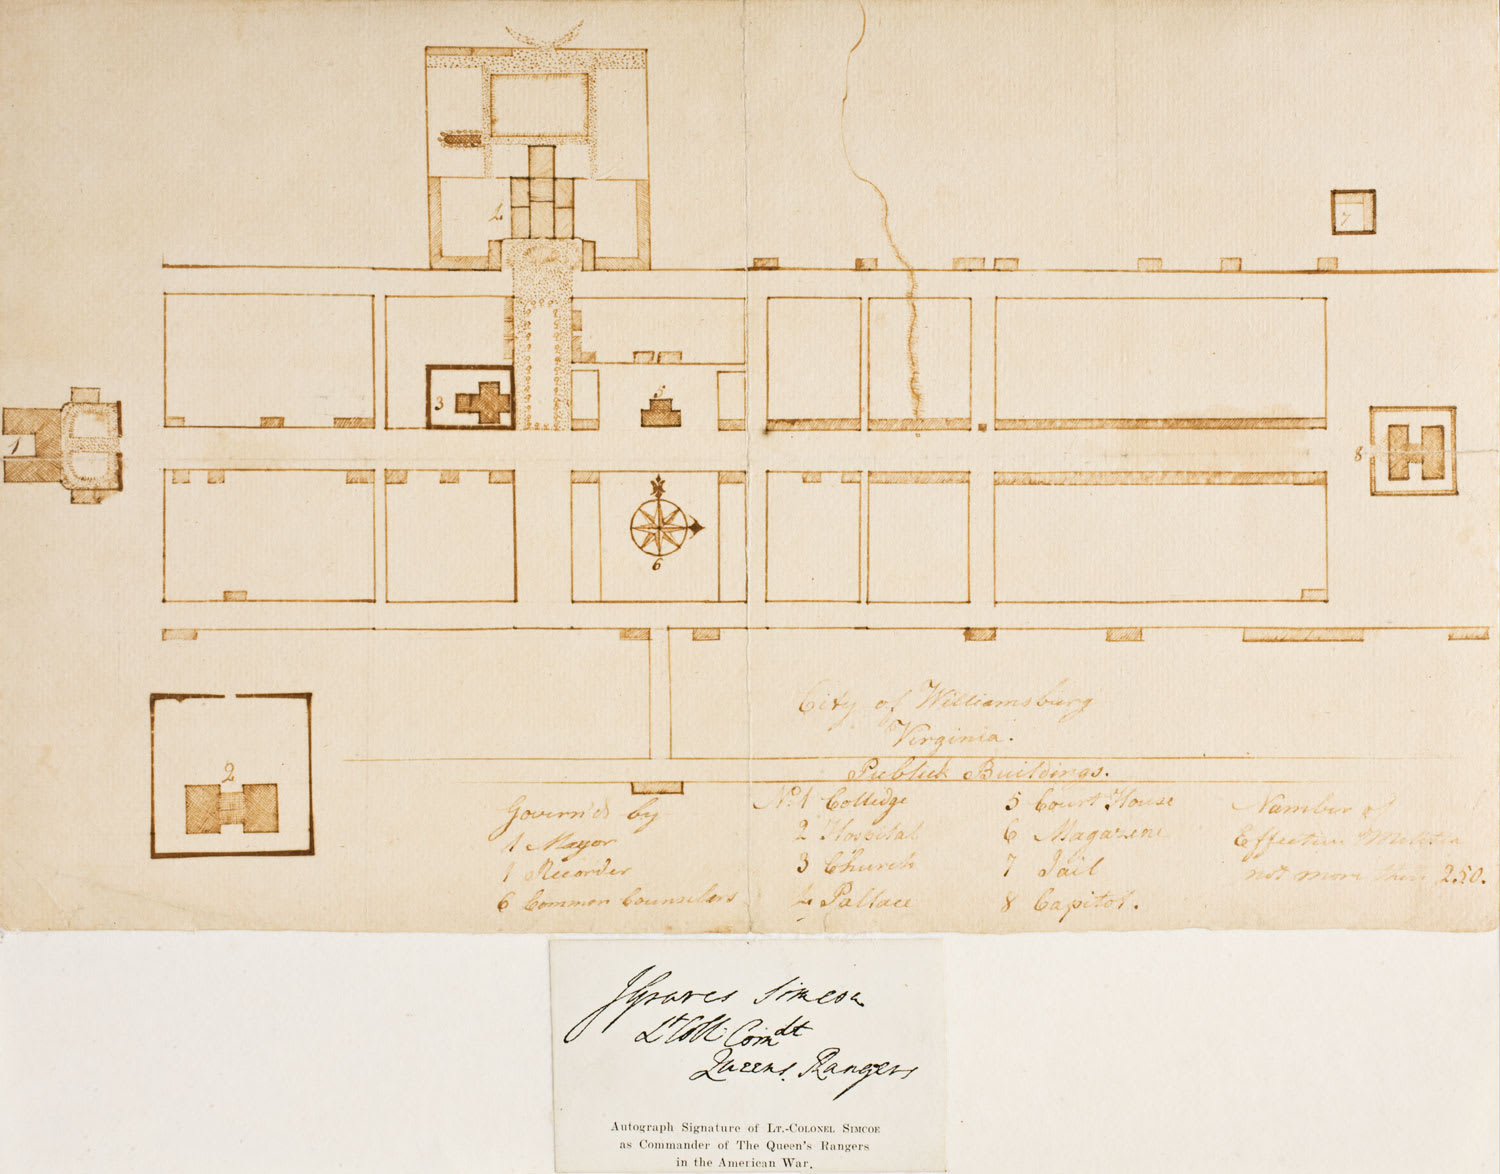 4
7
3
5
1
8
6
2
City of Williamsburg
Virginia.
Publick Buildings.
Govern'd by
1 Mayor
1 Recorder
6 Common Counselors
No. 1 Colledge
2 Hospital
3 Church
4 Pallace
5 Court House
6 Magazene
7 Jail
8 Capitol.
Number of
Effective Militia
not more than 250.
J Graves Simcoe
Lt Coll: Comdt
Queens Rangers
Autograph Signature of Lt.-Colonel Simcoe
as Commander of The Queen's Rangers
in the American War.